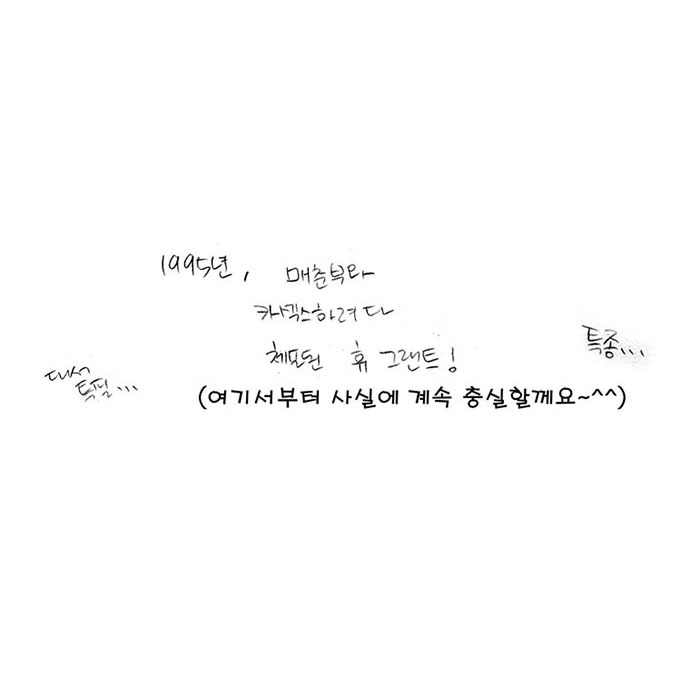 1995년, 매춘부와
카섹스하려다
체포된 휴 그랜트!
특종...
대서
특필...
(여기서부터 사실에 계속 충실할께요~^^)